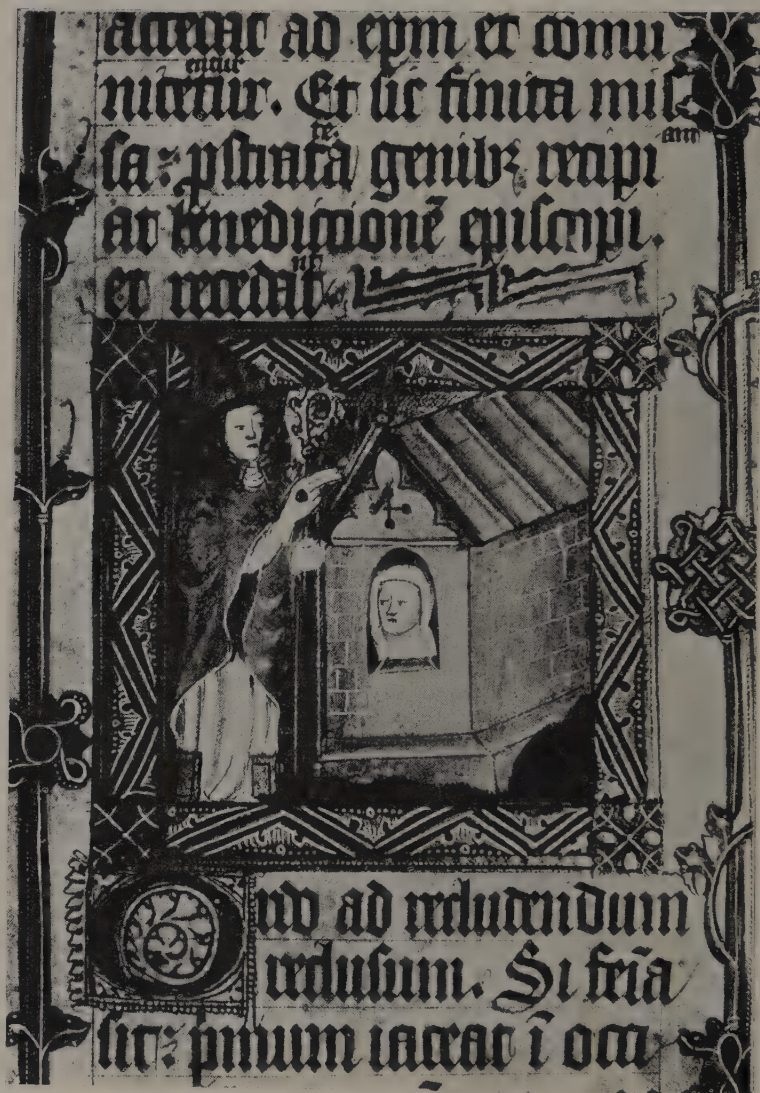 accedat ad epm et comu
entur
nicetur. Et sic finita mis
te
ant
sa: pstrata genibꝫ recipi
at benedictionē episcopi.
nt
et recedat.
Ordo ad recludendum
reclusum. Si feīa
sit: pmum iaceat ī occi